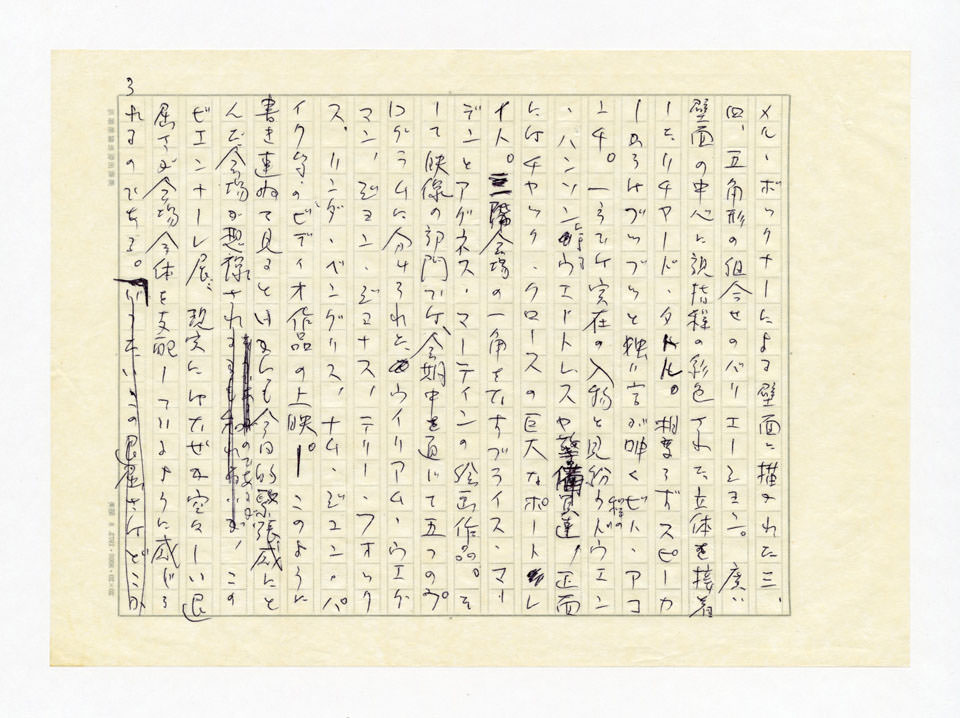 メル・ボックナーによる壁面に描かれた三、
四、五角形の組合せのバリエーション。広い
壁面の中心に親指程の彩色された立体を接着
したリチャード・タトル。相変らずスピーカ
ーからはブツブツと独り言が呻くビト・アコ
ンチ。一方では実在の人物と見紛う程のドウェン
・ハンソンのウエートレスや警備員達、正面
にはチャック・クロースの巨大なポートレ
イト。二階会場の一角を占すブライス・マー
デンとアグネス・マーティンの絵画作品。そ
して映像の部門では、会期中を通じて五つのプ
ログラムに分けられた、ウイリアム・ウエグ
マン、ジョン・ジョナス、テリー・フォック
ス、リンダ・ベングリス、ナム・ジュン・パ
イク等のビディオ作品の上映。――このように
書き連ねて見るといかにも今日的緊張感にと
んだ会場が想像されるのであるが、この
ビエンナーレ展、現実にはなぜか空々しい退
屈さが会場全体を支配しているように感じら
れるのである。
3